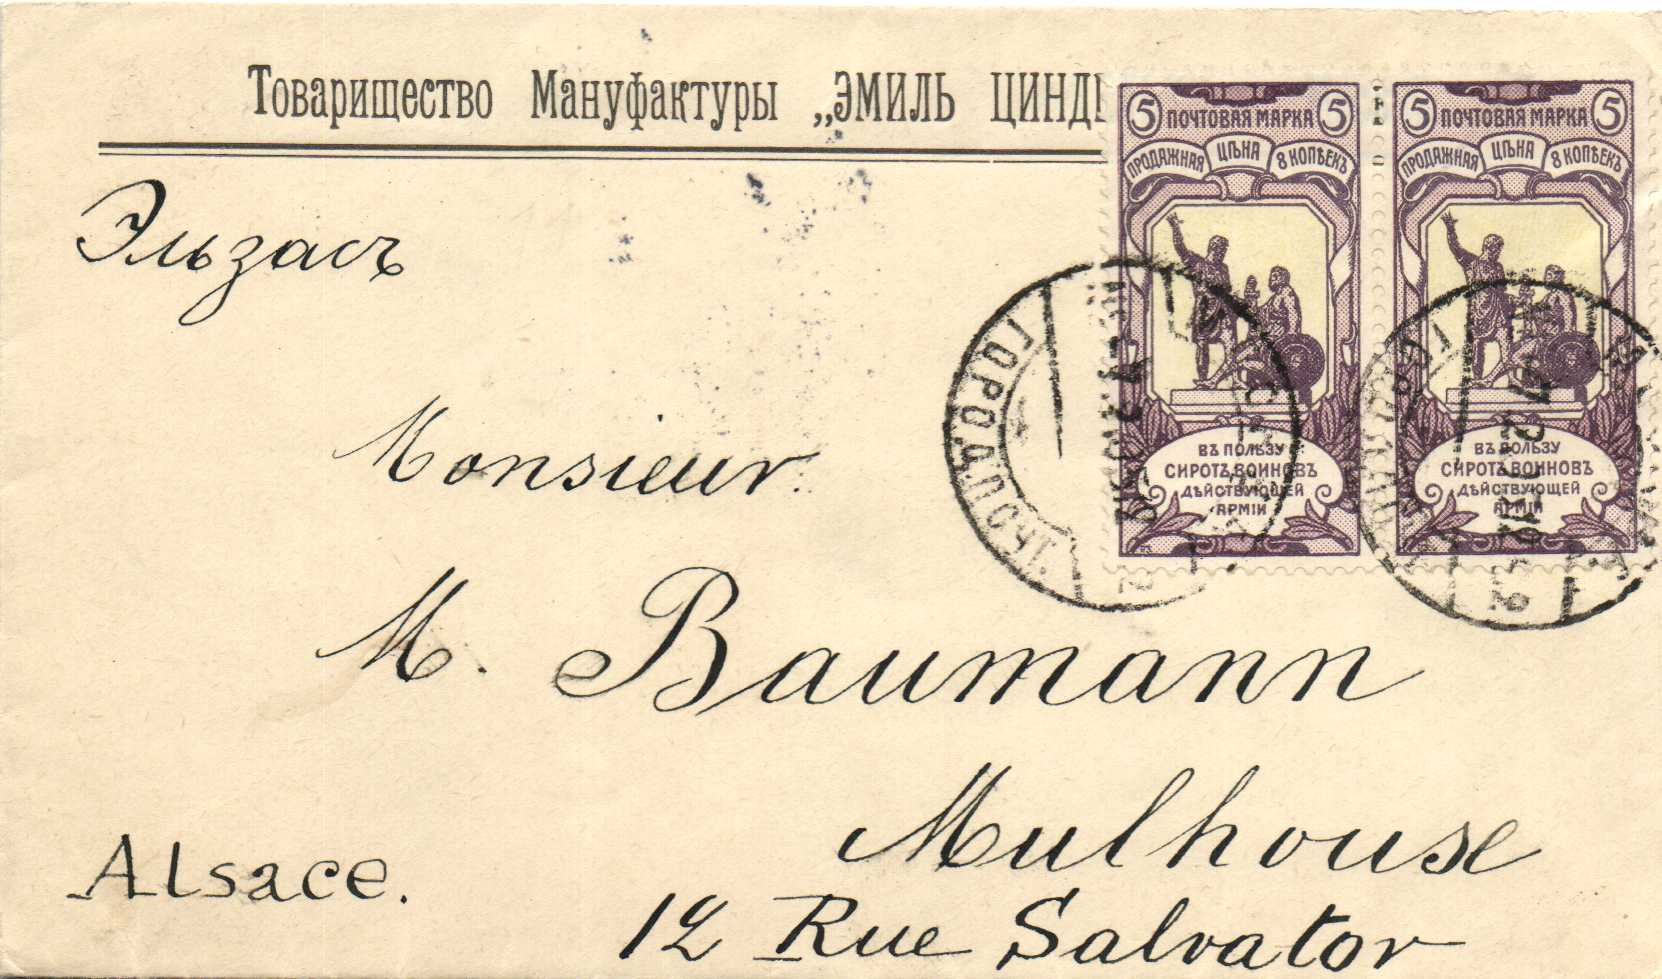 Товарищество Мануфактуры „ЭМИЛЬ ЦИНД
5 ПОЧТОВАЯ МАРКА 5
ПРОДАЖНАЯ ЦѢНА 8 КОПѢЕКЪ
ВЪ ПОЛЬЗУ
СИРОТЪ ВОИНОВЪ
ДѢЙСТВУЮЩЕЙ
АРМІИ
5 ПОЧТОВАЯ МАРКА 5
ПРОДАЖНАЯ ЦѢНА 8 КОПѢЕКЪ
ВЪ ПОЛЬЗУ
СИРОТЪ ВОИНОВЪ
ДѢЙСТВУЮЩЕЙ
АРМІИ
Эльзасъ
Monsieur
M. Baumann
Mulhouse
Alsace.
12 Rue Salvator